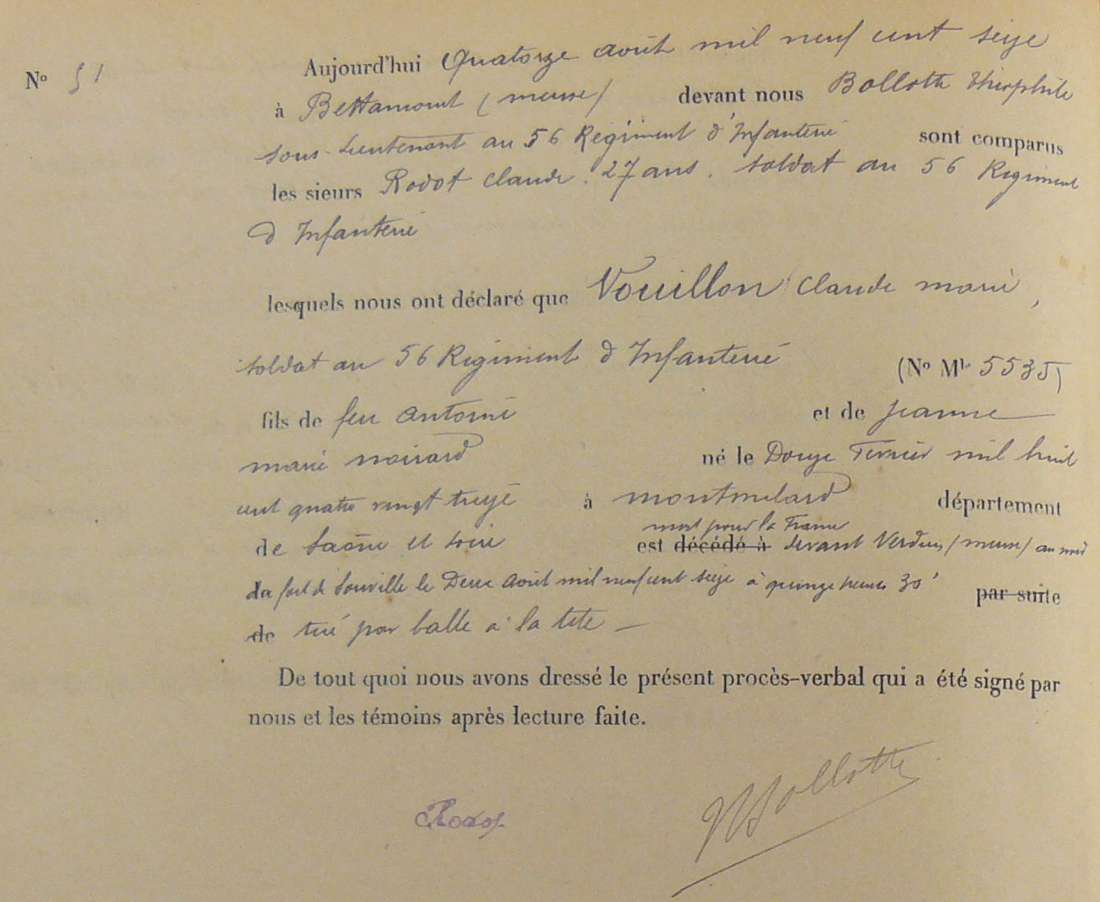 N° 51
Aujourd'hui Quatorze août mil neuf cent seize
à Bettamont (meuse) devant nous Bollotte Théophile
sous-Lieutenant au 56 Régiment d'Infanterie sont comparus
les sieurs Rodot Claude. 27 ans. soldat au 56 Régiment
d Infanterie
lesquels nous ont déclaré que Vouillon Claude marie,
soldat au 56 Régiment d Infanterie (N° Mle 5535)
fils de feu antoine et de jeanne
marie noirard né le Douze Fevrier mil huit
cent quatre vingt treize à montmelard département
mort pour la France
de Saône et Loire est décédé à devant Verdun (meuse) au nord
du fort de Souville le Deux août mil neuf cent seize à quinze heures 30' par suite
de tué par balle a la tete —
De tout quoi nous avons dressé le présent procès-verbal qui a été signé par
nous et les témoins après lecture faite.
Rodot Bollotte